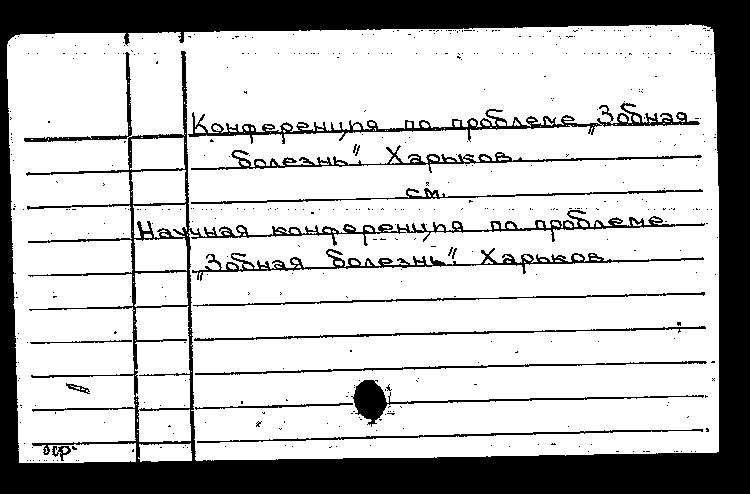 Конференция по проблеме „Зобная
болезнь". Харьков.
см.
Научная конференция по проблеме
„Зобная болезнь". Харьков.